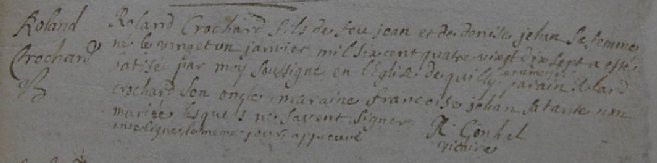 Roland
Crochard
B
Roland Crochard fils de feu jean et de denise jehan sa femme
né le vingt un janvier mil six cent quatre vingt dix sept a esté
batisé par moy soussigne en l'Eglise de quilly parain Roland
crochard son oncle, maraine francoise jehan sa tante non
mariée lesquels ne savent signer
enseigner la meme jour approuvé
R. Gouhal
vicaire